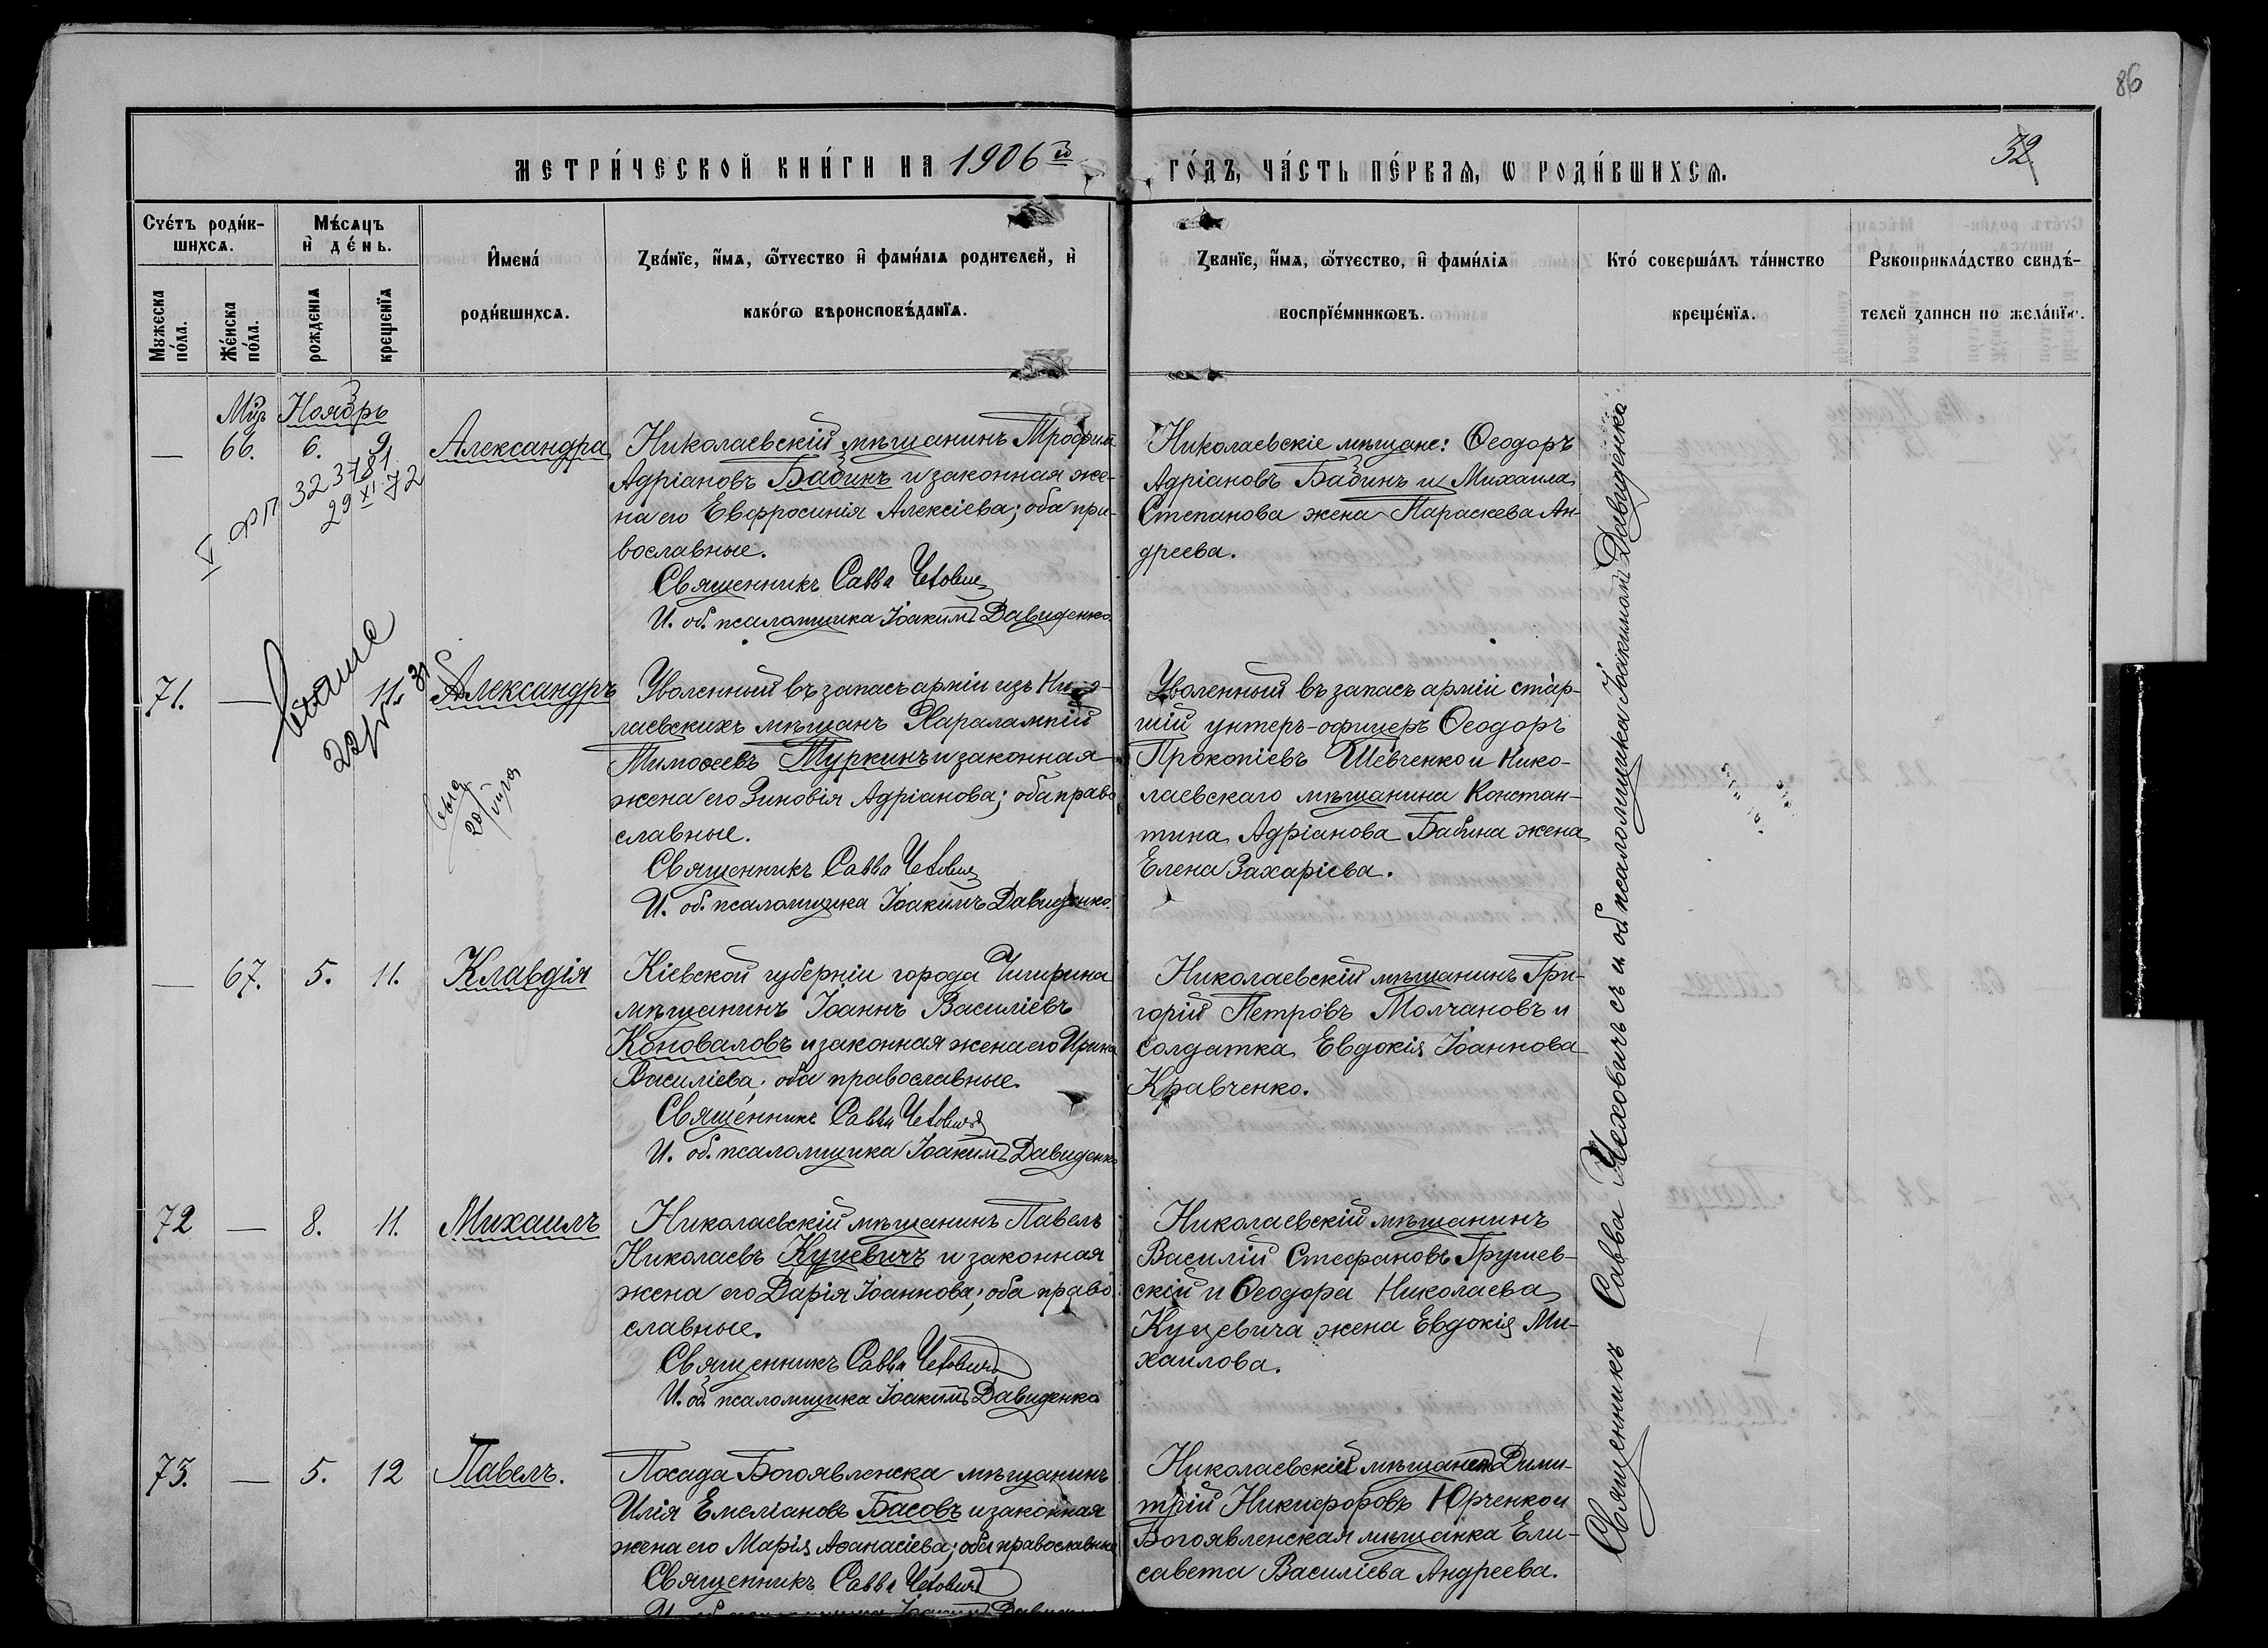 86
32
МЕТРИ́ЧЕСКОЙ КНИ́ГИ НА 1906й ГО́ДЪ, ЧА́СТЬ ПЕ́РВАѦ, Ѡ РОДИ́ВШИХСѦ.
Сче́тъ роди́в-
шихсѧ.
Мѣ́сѧцъ
и҆ де́нь.
И҆мена́
роди́вшихсѧ.
Зва́нїе, и҆́мѧ, ѻ҆́тчество и҆ фами́лїѧ родителей, и҆
како́гѡ вѣроисповѣ́данїѧ.
Зва́нїе, и҆́мѧ, ѻ҆́тчество, и҆ фами́лїѧ
воспрїе́мникѡвъ.
Кто́ соверша́лъ та́инство
креще́нїѧ.
Рꙋкоприкла́дство свидѣ́-
телей записи по жела́нїю.
Мꙋжеска
по́ла.
Же́нска
по́ла.
рожденїѧ
крещенїѧ
Мцъ Ноябрь
— 66. 6. 9. Александра
Николаевскій мѣщанинъ Трофим
Адріановъ Бабинъ и законная же-
на его Евфросинія Алексіева; оба пра-
вославные.
Священникъ Савва Чехович
И. об. псаломщика Іоакимъ Давиденко
Николаевскіе мѣщане: Ѳеодоръ
Адріановъ Бабинъ и Михаила
Степанова жена Параскева Ан-
дреева.
V ФП 323781
29 XI 72
71. — 11. Александръ
Уволенный въ запасъ арміи изъ Нико-
лаевскихъ мѣщанъ Харалампій
Тимоѳеевъ Туркинъ и законная
жена его Зиновія Адріанова; оба право
славные.
Священникъ Савва Чехович
И. об. псаломщика Іоакимъ Давиденко.
Уволенный въ запасъ арміи стар-
шій унтеръ-офицеръ Ѳеодоръ
Прокопіевъ Шевченко и Нико-
лаевскаго мѣщанина Констан-
тина Адріанова Бабина жена
Елена Захаріева.
— 67. 5. 11. Клавдія
Кіевской губерніи города Чигирина
мѣщанинъ Іоаннъ Василіевъ
Коноваловъ и законная жена его Ирина
Василіева; оба православные.
Священникъ Савва Чехович
И. об. псаломщика Іоакимъ Давиденко
Николаевскій мѣщанинъ Гри-
горій Петровъ Молчановъ и
солдатка Евдокія Іоаннова
Кравченко.
72 — 8. 11. Михаилъ
Николаевскій мѣщанинъ Павелъ
Николаевъ Куцевичъ и законная
жена его Дарія Іоаннова; оба право
славные.
Священникъ Савва Чехович
И. об. псаломщика Іоакимъ Давиденко
Николаевскій мѣщанинъ
Василій Стефановъ Грушев-
скій и Ѳеодора Николаева
Куцевича жена Евдокія Ми-
хаилова.
73. — 5. 12 Павелъ.
Посада Богоявленска мѣщанинъ
Илія Емеліановъ Басовъ и законная
жена его Марія Аѳанасіева; оба православные
Священникъ Савва Чехович
И. об. псаломщика Іоакимъ Давиденко
Николаевскій мѣщанинъ Дими-
трій Никифоровъ Юрченко и
Богоявленская мѣщанка Ели-
савета Василіева Андреева.
Священникъ Савва Чеховичъ съ и об псаломщика Іоакимомъ Давиденко